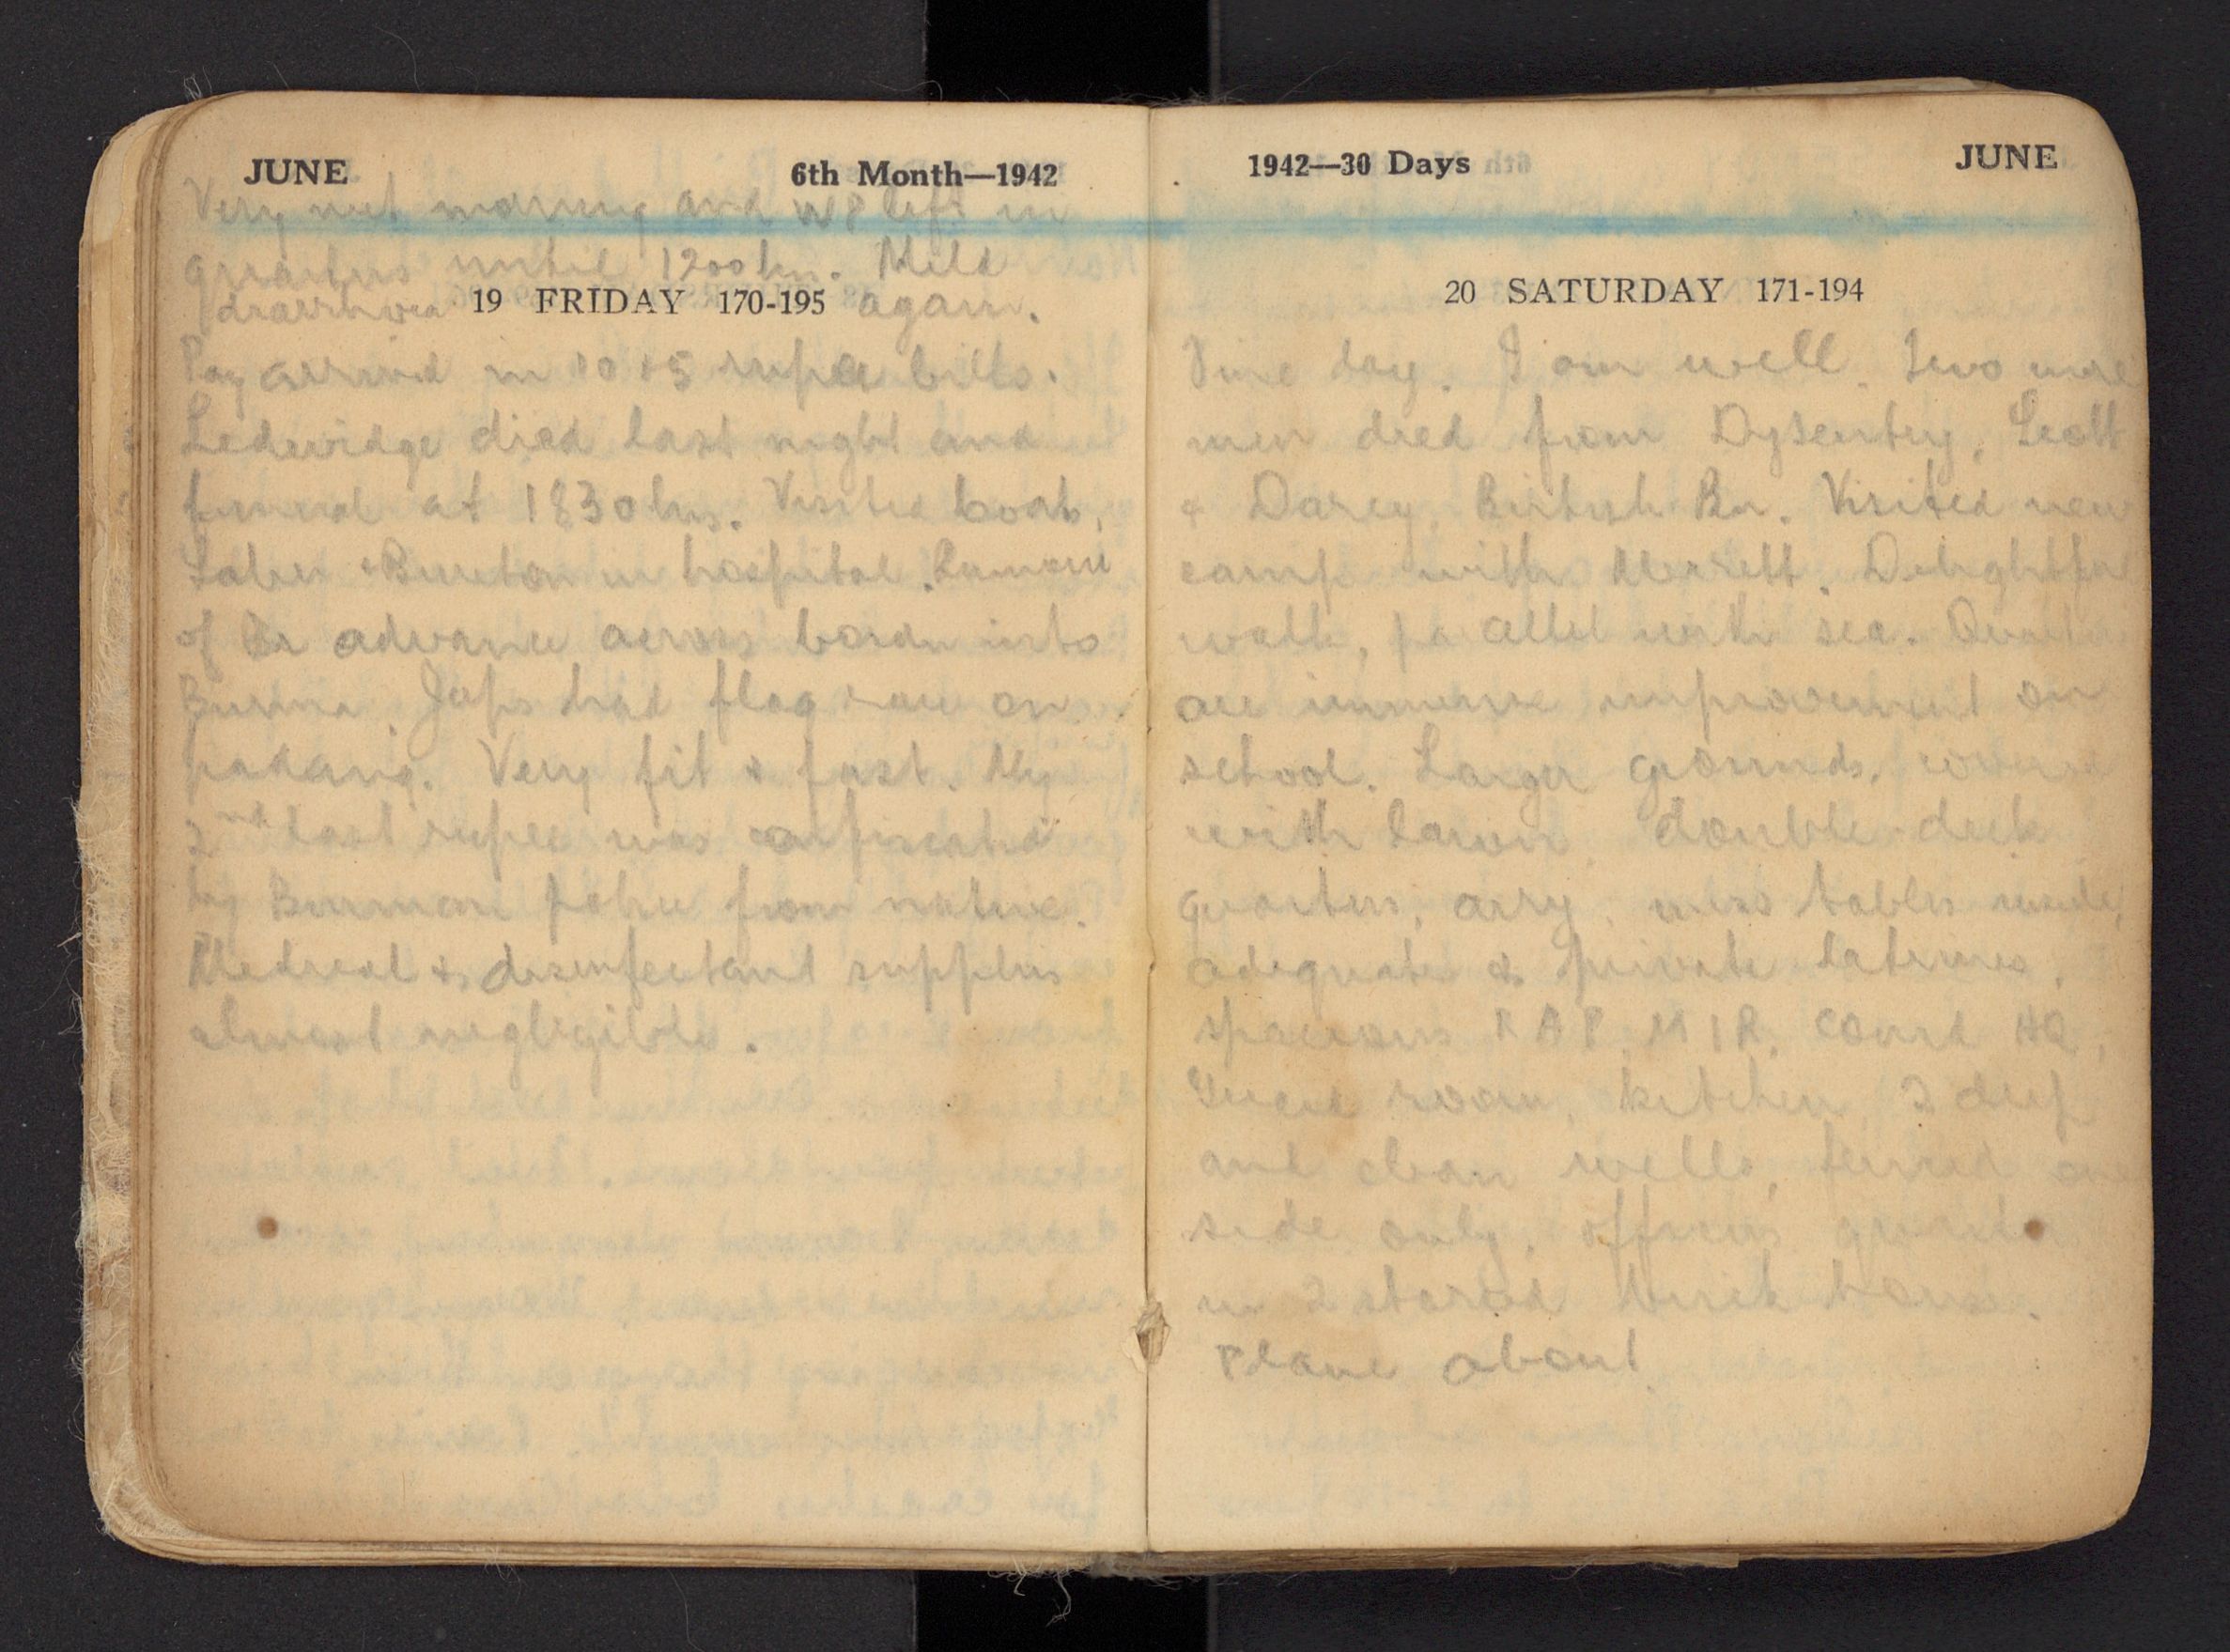 JUNE 6th Month—1942
Very wet morning and WP left in
quarters until 1200 hrs. Mild
diarrhoea 19 FRIDAY 170-195 again.
Pay arrived in 10 & 5 rupee bills.
Ledwidge died last night and
funeral at 1830 hrs. Visited
& Burston in hospital. Rumour
of Br advance across border into
Burma. Japs had flag race on
padang. Very fit & fast. My
2nd last rupee was confiscated
by Burman police from native.
Medical & disenfectant supplies
almost negligible.
1942—30 Days JUNE
20 SATURDAY 171-194
Fine day. I am well. Two more
men died from Dysentery, Scott
& Darcy, British Bn. Visited new
camp with Merrett. Delightful
walk, parallel with sea. Quarters
are immense improvement on
school. Larger grounds, covered
with lawn, double deck
quarters, airy, mess tables inside,
adequate & private latrines,
spacious RAP, MIR, Comd HQ,
Guard room, kitchen, 2 deep
and clean wells, fenced one
side only, officers quarters
in 2 storied brick house.
Plane about